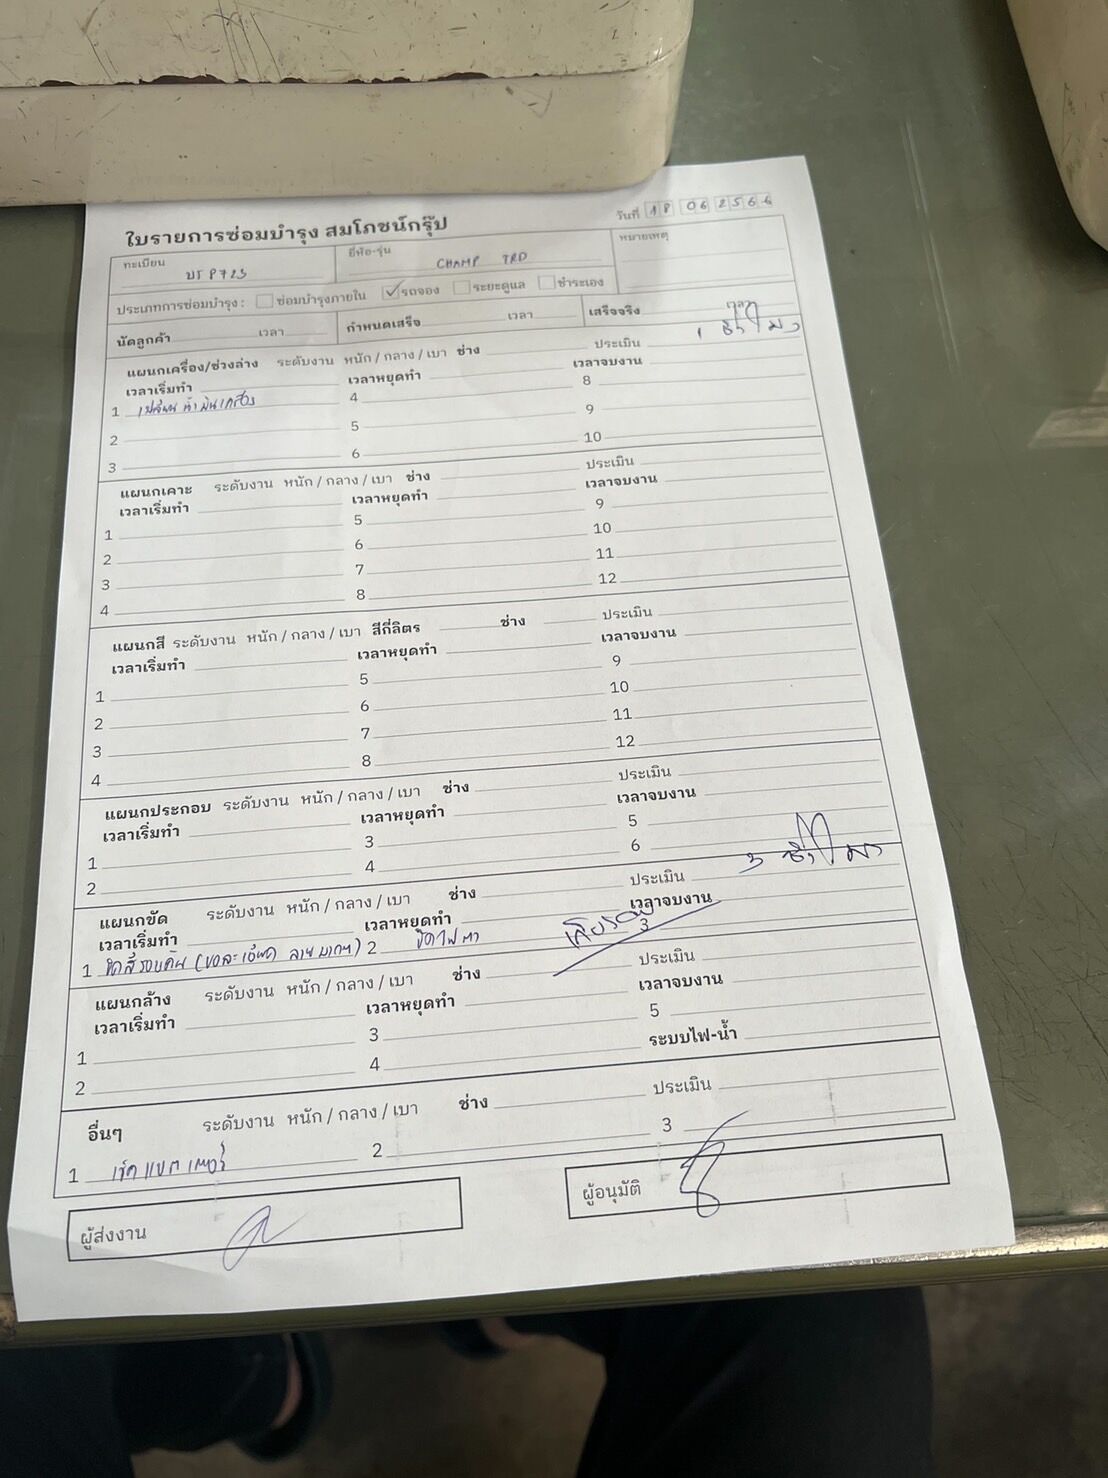 ใบรายการซ่อมบำรุง สมโภชน์กรุ๊ป
วันที่ 18 06 2566
ทะเบียน
ยี่ห้อ-รุ่น CHAMP TRD
หมายเหตุ
ประเภทการซ่อมบำรุง : ซ่อมบำรุงภายใน ✓ รถจอง ระยะดูแล ชำระเอง
นัดลูกค้า เวลา กำหนดเสร็จ เวลา เสร็จจริง เวลา
แผนกเครื่อง/ช่วงล่าง ระดับงาน หนัก / กลาง / เบา ช่าง ประเมิน 1 ชั่วโมง
เวลาเริ่มทำ เวลาหยุดทำ เวลาจบงาน
1 เปลี่ยนน้ำมันเครื่อง 4 8
2 5 9
3 6 10
แผนกเคาะ ระดับงาน หนัก / กลาง / เบา ช่าง ประเมิน
เวลาเริ่มทำ เวลาหยุดทำ เวลาจบงาน
1 5 9
2 6 10
3 7 11
4 8 12
แผนกสี ระดับงาน หนัก / กลาง / เบา สีกี่ลิตร ช่าง ประเมิน
เวลาเริ่มทำ เวลาหยุดทำ เวลาจบงาน
1 5 9
2 6 10
3 7 11
4 8 12
แผนกประกอบ ระดับงาน หนัก / กลาง / เบา ช่าง ประเมิน
เวลาเริ่มทำ เวลาหยุดทำ เวลาจบงาน
1 3 5
2 4 6
แผนกขัด ระดับงาน หนัก / กลาง / เบา ช่าง ประเมิน 3 ชั่วโมง
เวลาเริ่มทำ เวลาหยุดทำ เวลาจบงาน
1 ขัดสีรอบคัน (ขอละเอียด ลายมากๆ) 2 ขัดไฟตา 3
แผนกล้าง ระดับงาน หนัก / กลาง / เบา ช่าง ประเมิน
เวลาเริ่มทำ เวลาหยุดทำ เวลาจบงาน
1 3 5
2 4 ระบบไฟ-น้ำ
อื่นๆ ระดับงาน หนัก / กลาง / เบา ช่าง ประเมิน
1 เช็คแบตเตอรี่ 2 3
ผู้ส่งงาน
ผู้อนุมัติ